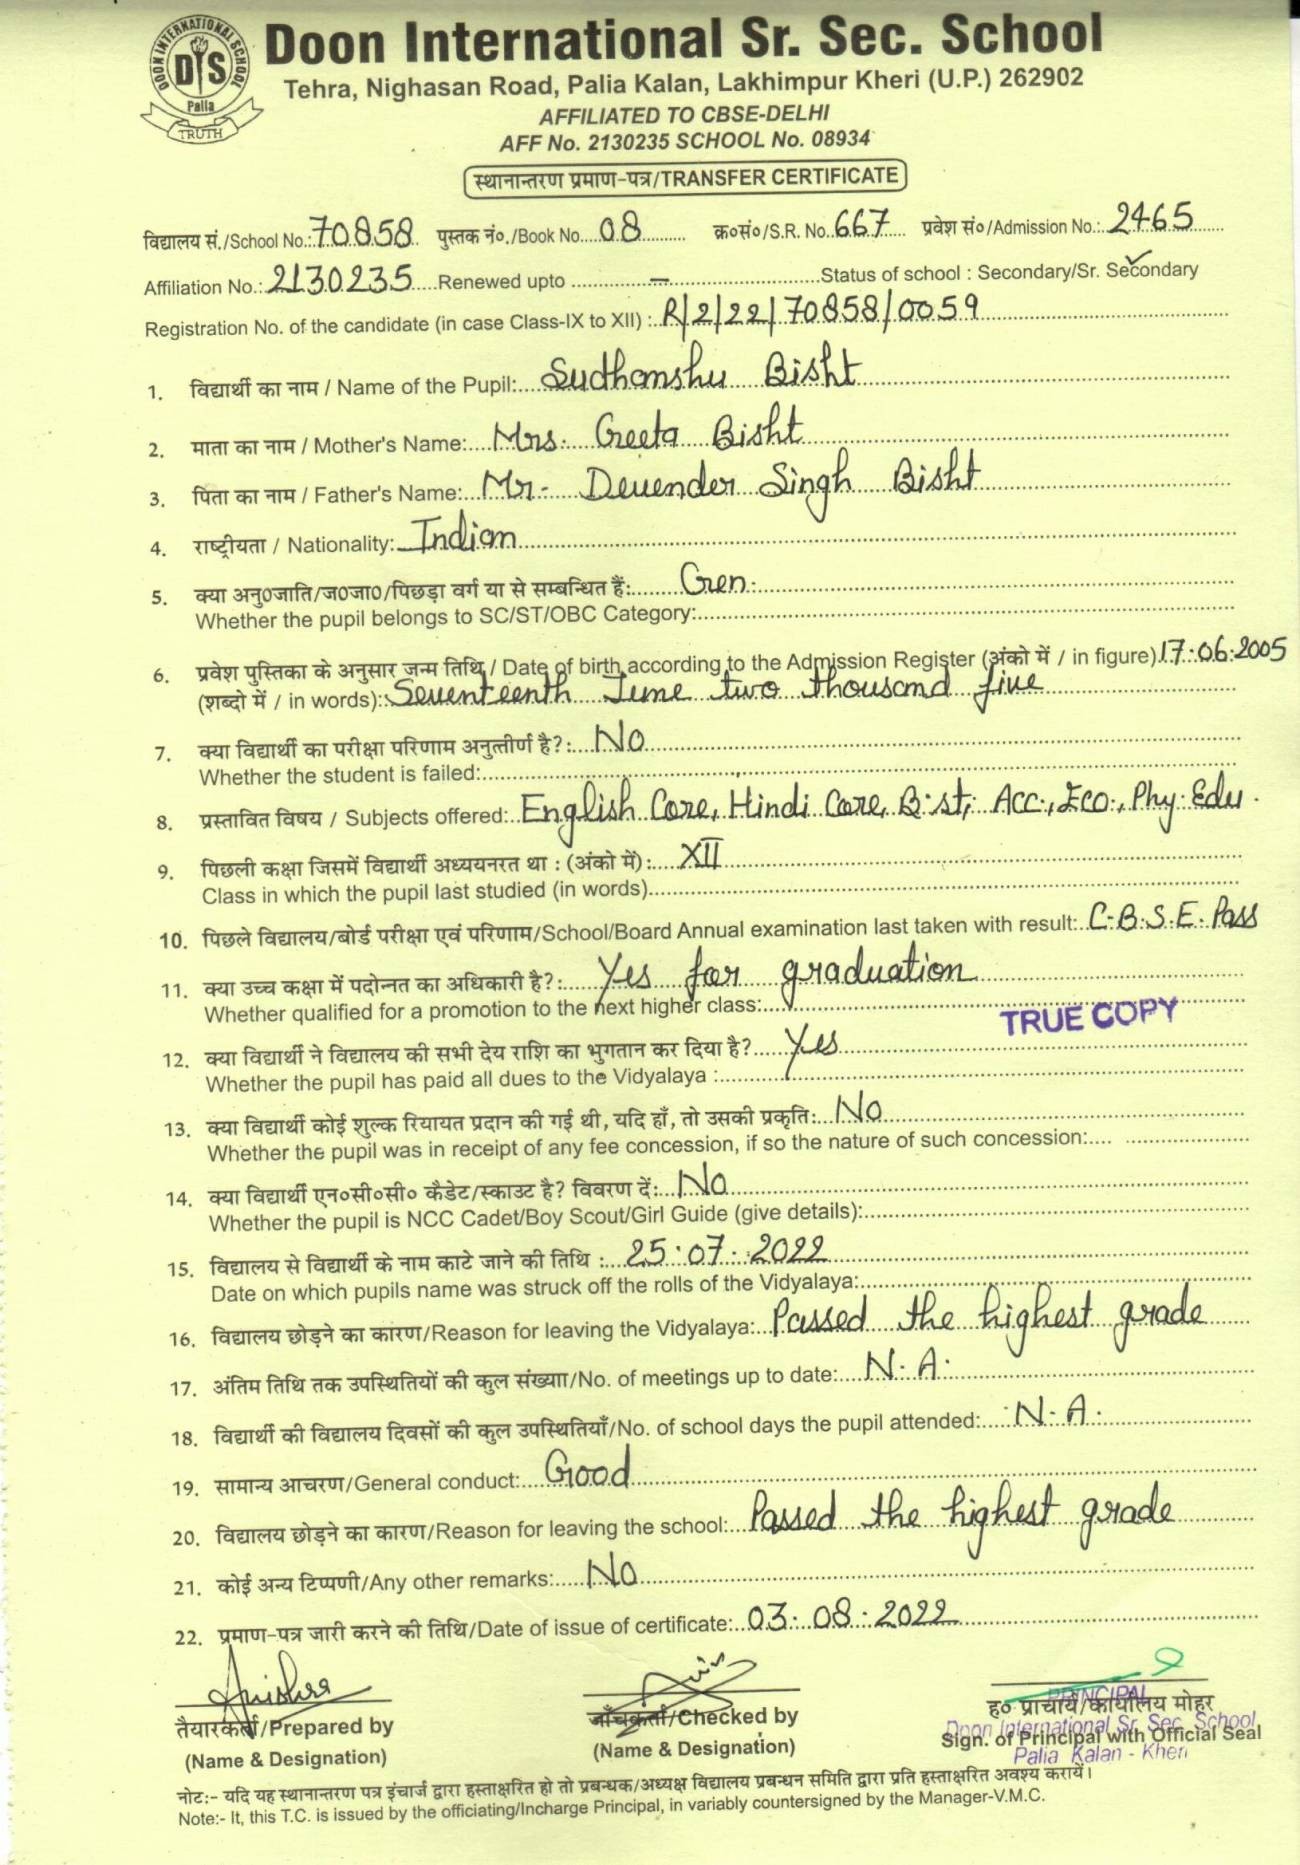 DOON INTERNATIONAL SCHOOL
DIS
Palia
TRUTH
Doon International Sr. Sec. School
Tehra, Nighasan Road, Palia Kalan, Lakhimpur Kheri (U.P.) 262902
AFFILIATED TO CBSE-DELHI
AFF No. 2130235 SCHOOL No. 08934
स्थानान्तरण प्रमाण-पत्र/TRANSFER CERTIFICATE
विद्यालय सं./School No.: 70858 पुस्तक नं०./Book No. 08 क्र०सं०/S.R. No. 667 प्रवेश सं०/Admission No.: 2465
Affiliation No.: 2130235 Renewed upto — Status of school : Secondary/Sr. Secondary
Registration No. of the candidate (in case Class-IX to XII) : R/2/22/70858/0059
1. विद्यार्थी का नाम / Name of the Pupil: Sudhanshu Bisht
2. माता का नाम / Mother's Name: Mrs. Geeta Bisht
3. पिता का नाम / Father's Name: Mr- Devender Singh Bisht
4. राष्ट्रीयता / Nationality: Indian
5. क्या अनु०जाति/ज०जा०/पिछड़ा वर्ग या से सम्बन्धित हैं: Gen.
Whether the pupil belongs to SC/ST/OBC Category:
6. प्रवेश पुस्तिका के अनुसार जन्म तिथि / Date of birth according to the Admission Register (अंको में / in figure) 17.06.2005
(शब्दो में / in words): Seventeenth June two thousand five
7. क्या विद्यार्थी का परीक्षा परिणाम अनुत्तीर्ण है?: No
Whether the student is failed:
8. प्रस्तावित विषय / Subjects offered: English Core, Hindi Core, B.st, Acc., Eco., Phy. Edu.
9. पिछली कक्षा जिसमें विद्यार्थी अध्ययनरत था : (अंको में): XII
Class in which the pupil last studied (in words)
10. पिछले विद्यालय/बोर्ड परीक्षा एवं परिणाम/School/Board Annual examination last taken with result: C.B.S.E. Pass
11. क्या उच्च कक्षा में पदोन्नत का अधिकारी है?: Yes for graduation
Whether qualified for a promotion to the next higher class:
TRUE COPY
12. क्या विद्यार्थी ने विद्यालय की सभी देय राशि का भुगतान कर दिया है? Yes
Whether the pupil has paid all dues to the Vidyalaya :
13. क्या विद्यार्थी कोई शुल्क रियायत प्रदान की गई थी, यदि हाँ, तो उसकी प्रकृति: No
Whether the pupil was in receipt of any fee concession, if so the nature of such concession:
14. क्या विद्यार्थी एन०सी०सी० कैडेट/स्काउट है? विवरण दें: No
Whether the pupil is NCC Cadet/Boy Scout/Girl Guide (give details):
15. विद्यालय से विद्यार्थी के नाम काटे जाने की तिथि : 25.07.2022
Date on which pupils name was struck off the rolls of the Vidyalaya:
16. विद्यालय छोड़ने का कारण/Reason for leaving the Vidyalaya: Passed the highest grade
17. अंतिम तिथि तक उपस्थितियों की कुल संख्याा/No. of meetings up to date: N.A.
18. विद्यार्थी की विद्यालय दिवसों की कुल उपस्थितियाँ/No. of school days the pupil attended: N.A.
19. सामान्य आचरण/General conduct: Good
20. विद्यालय छोड़ने का कारण/Reason for leaving the school: Passed the highest grade
21. कोई अन्य टिप्पणी/Any other remarks: No
22. प्रमाण-पत्र जारी करने की तिथि/Date of issue of certificate: 03.08.2022
तैयारकर्ता/Prepared by
(Name & Designation)
जाँचकर्ता/Checked by
(Name & Designation)
PRINCIPAL
ह० प्राचार्य/कार्यालय मोहर
Doon International Sr. Sec. School
Sign. of Principal with Official Seal
Palia Kalan - Kheri
नोट:- यदि यह स्थानान्तरण पत्र इंचार्ज द्वारा हस्ताक्षरित हो तो प्रबन्धक/अध्यक्ष विद्यालय प्रबन्धन समिति द्वारा प्रति हस्ताक्षरित अवश्य करायें।
Note:- It, this T.C. is issued by the officiating/Incharge Principal, in variably countersigned by the Manager-V.M.C.